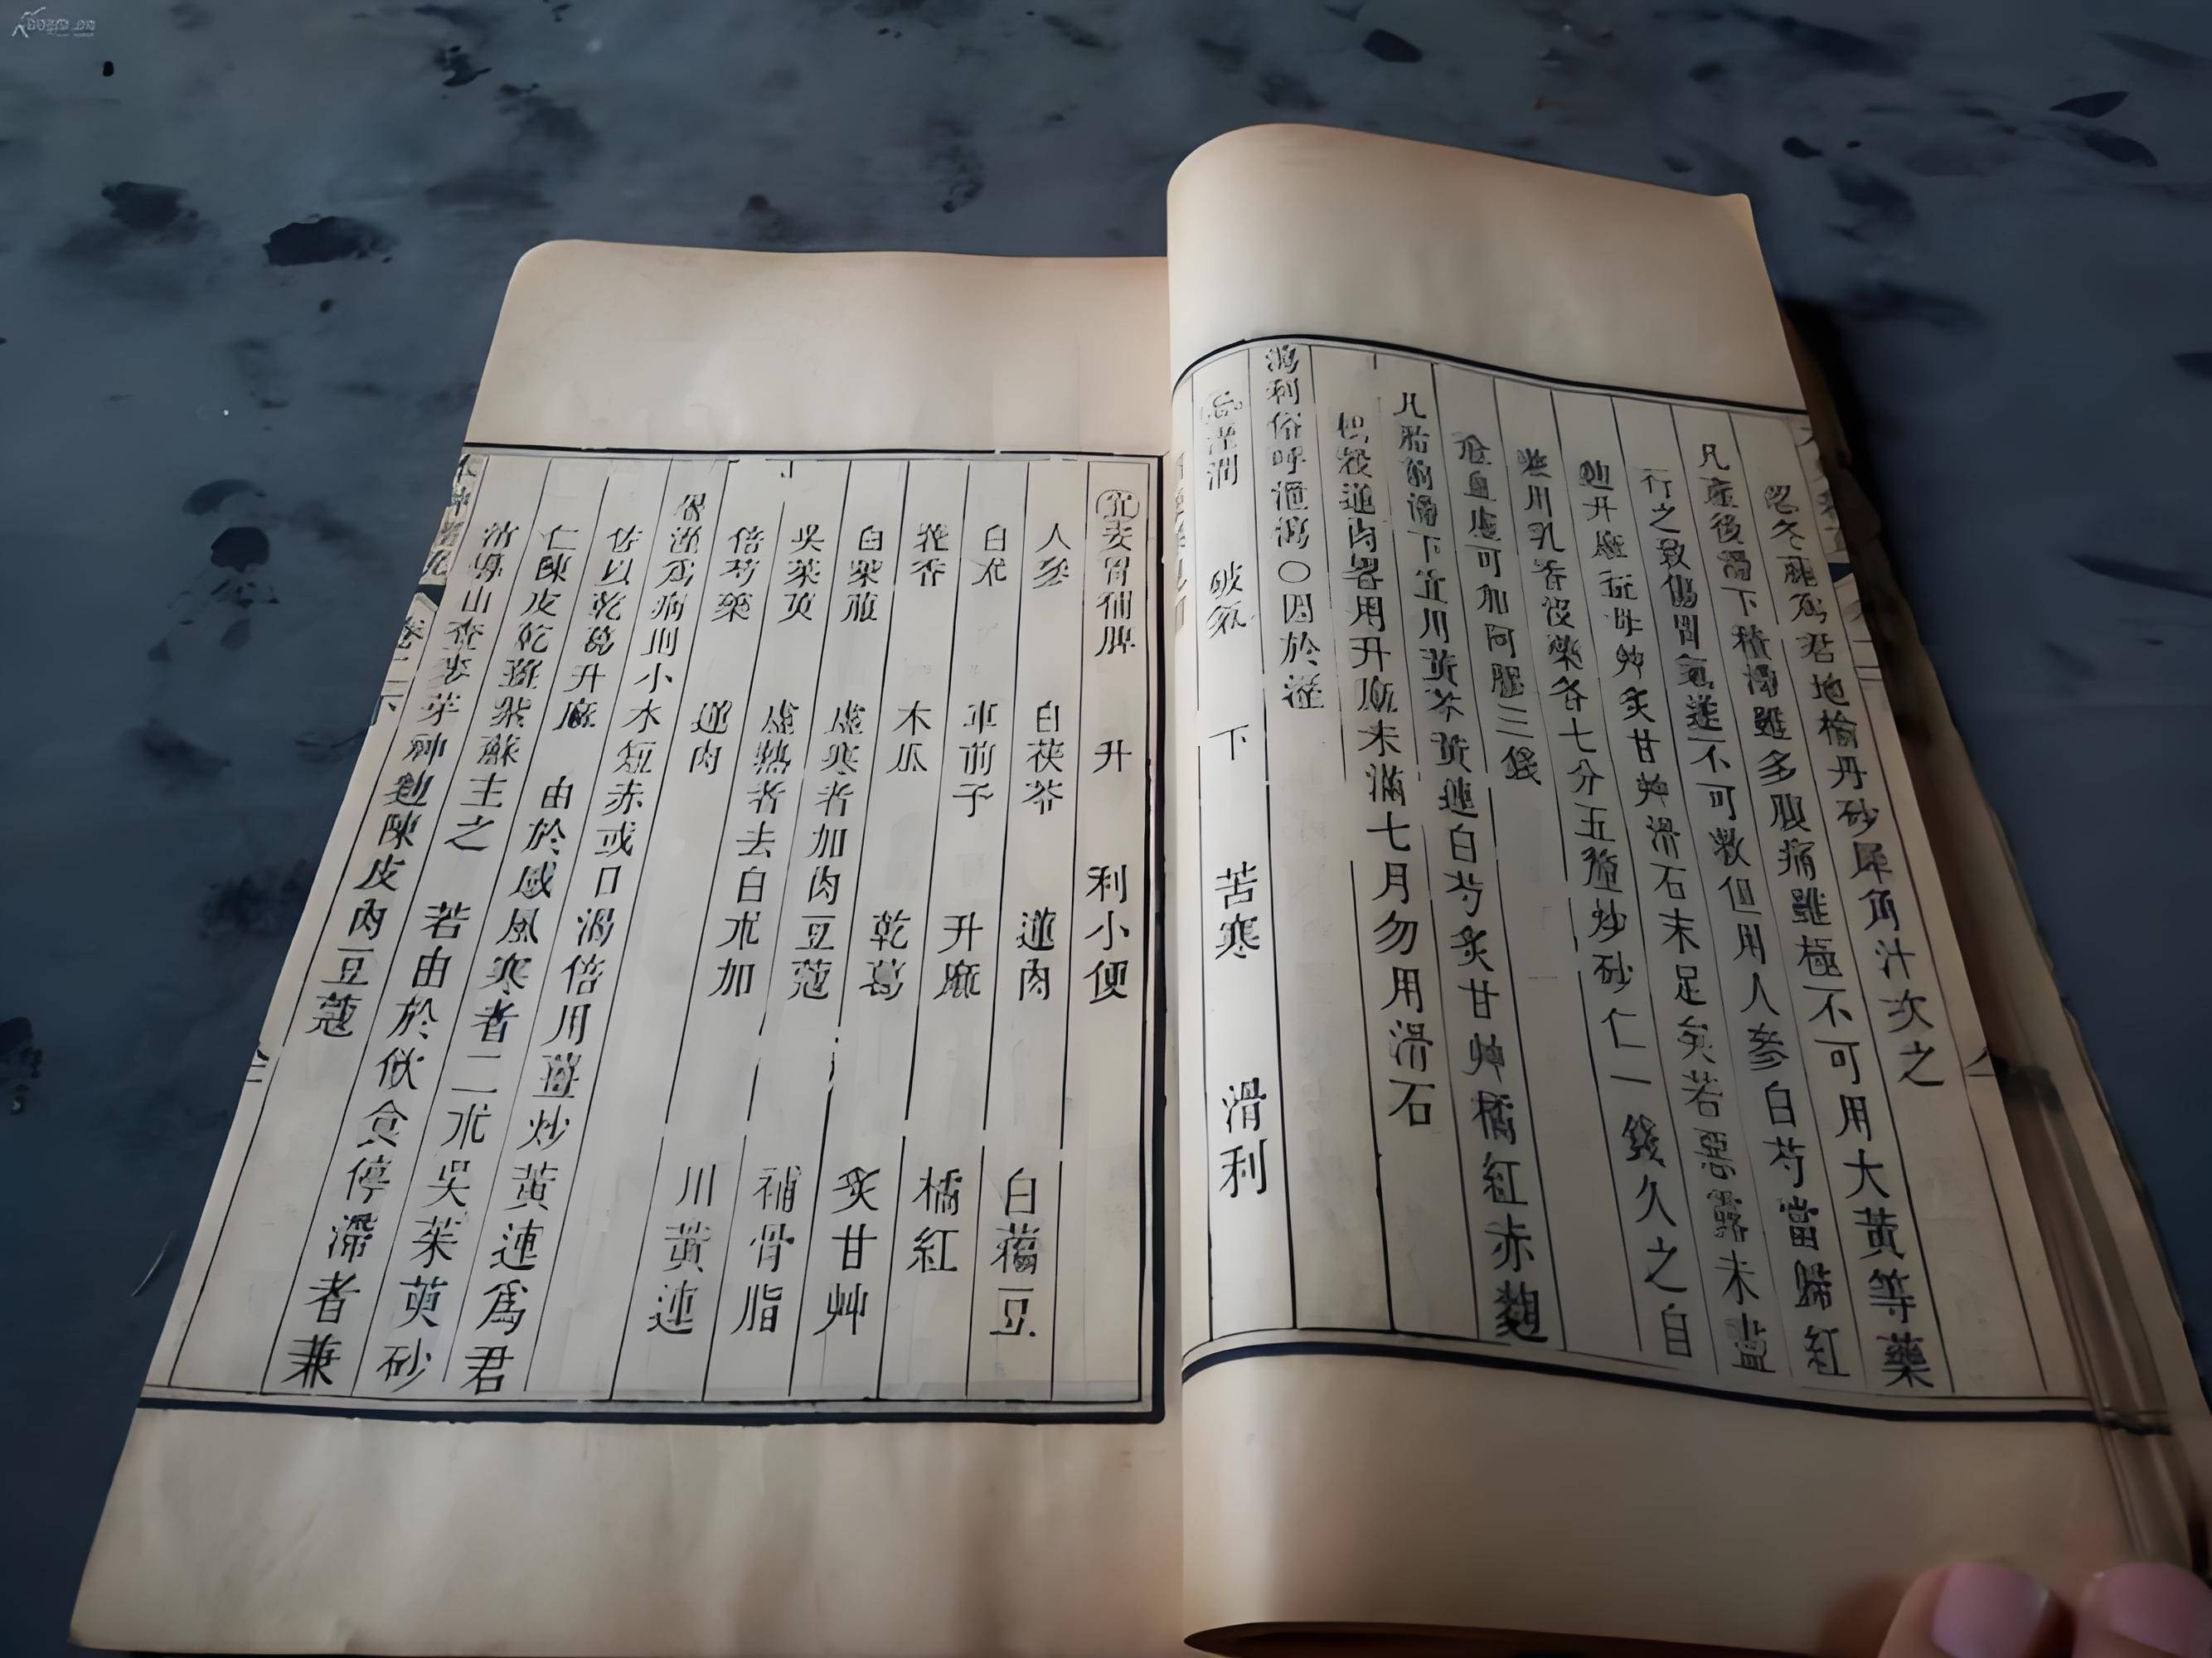 忍冬藤爲君地榆丹砂犀角汁次之
凡產後滯下積滯雖多腹痛雖極不可用大黃等藥
行之致傷胃氣遂不可救但用人參白芍當歸紅
麴升麻益母艸炙甘艸滑石末足矣若惡露未盡
兼用乳香沒藥各七分五釐炒砂仁一錢久之自
愈血虛可加阿膠三錢
凡胎前滯下宜川黃芩黃連白芍炙甘艸橘紅赤麴
枳殼蓮肉畧用升麻未滿七月勿用滑石
瀉利俗呼泄瀉○因於溼
忌溼潤 破氣 下 苦寒 滑利
宜安胃補脾 升 利小便
人參 白茯苓 蓮肉 白藊豆
白朮 車前子 升麻 橘紅
藿香 木瓜 乾葛 炙甘艸
白萊菔 虛寒者加肉豆蔻 補骨脂
吳茱萸 虛熱者去白朮加 川黃連
倍芍藥 蓮肉
暑溼爲病則小水短赤或口渴倍用薑炒黃連爲君
佐以乾葛升麻 由於感風寒者二朮吳茱萸砂
仁陳皮乾薑紫蘇主之 若由於飲食停滯者兼
消導山查麥芽神麴陳皮肉豆蔻
卷二下